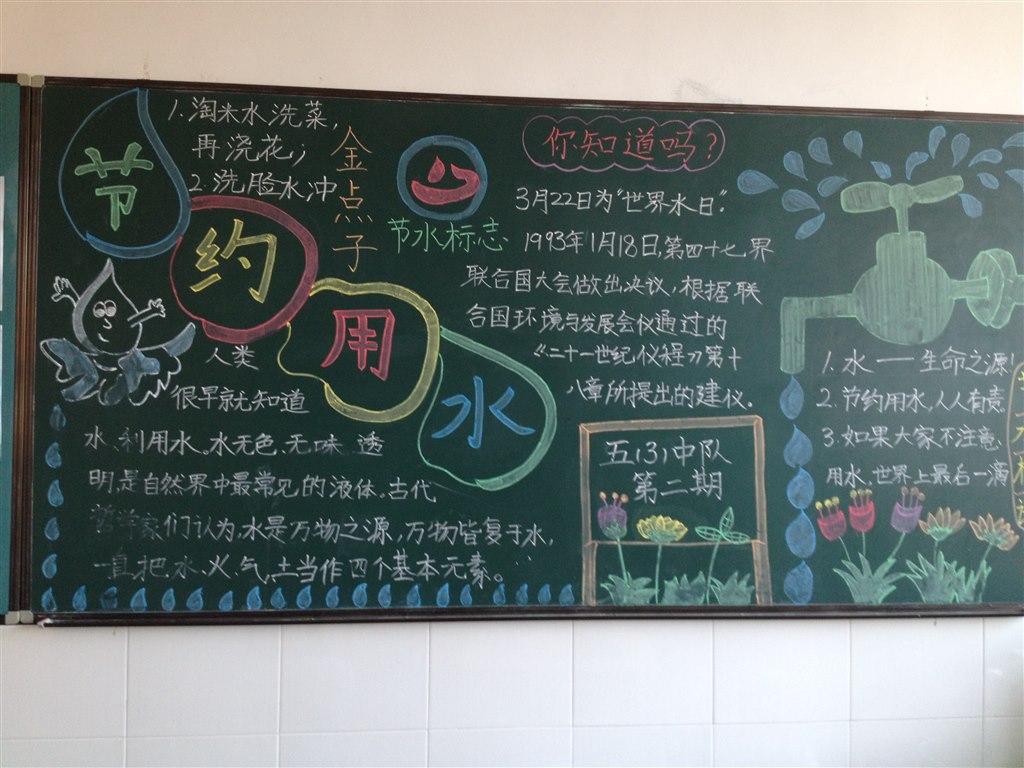 节约用水
1.淘米水洗菜,
再浇花;
2.洗脸水冲
金点子
节水标志
人类
很早就知道
水、利用水。水无色、无味、透
明,是自然界中最常见的液体。古代
哲学家们认为,水是万物之源,万物皆复于水,
一直把水、火、气、土当作四个基本元素。
你知道吗?
3月22日为"世界水日".
1993年1月18日,第四十七界
联合国大会做出决议,根据联
合国环境与发展会仪通过的
《二十一世纪仪程》第十
八章所提出的建仪.
五(3)中队
第二期
1.水——生命之源!
2.节约用水,人人有责
3.如果大家不注意
用水,世界上最后一滴